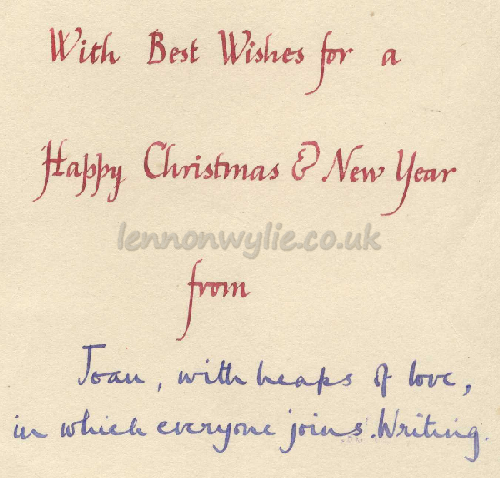 With Best Wishes for a
Happy Christmas & New Year
lennonwylie.co.uk
from
Joan, with heaps of love,
in which everyone joins. Writing.